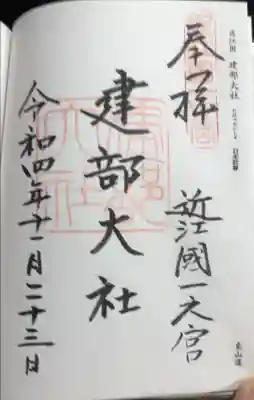 近江国 建部大社
奉拝
近江國一之宮
建部大社
令和四年十一月二十三日
東山道